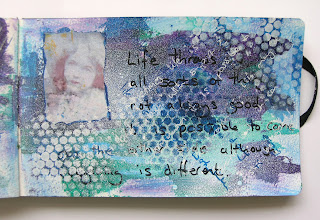 Life throws
all sorts of
not always good
it is possible to come
the other side although
is different.